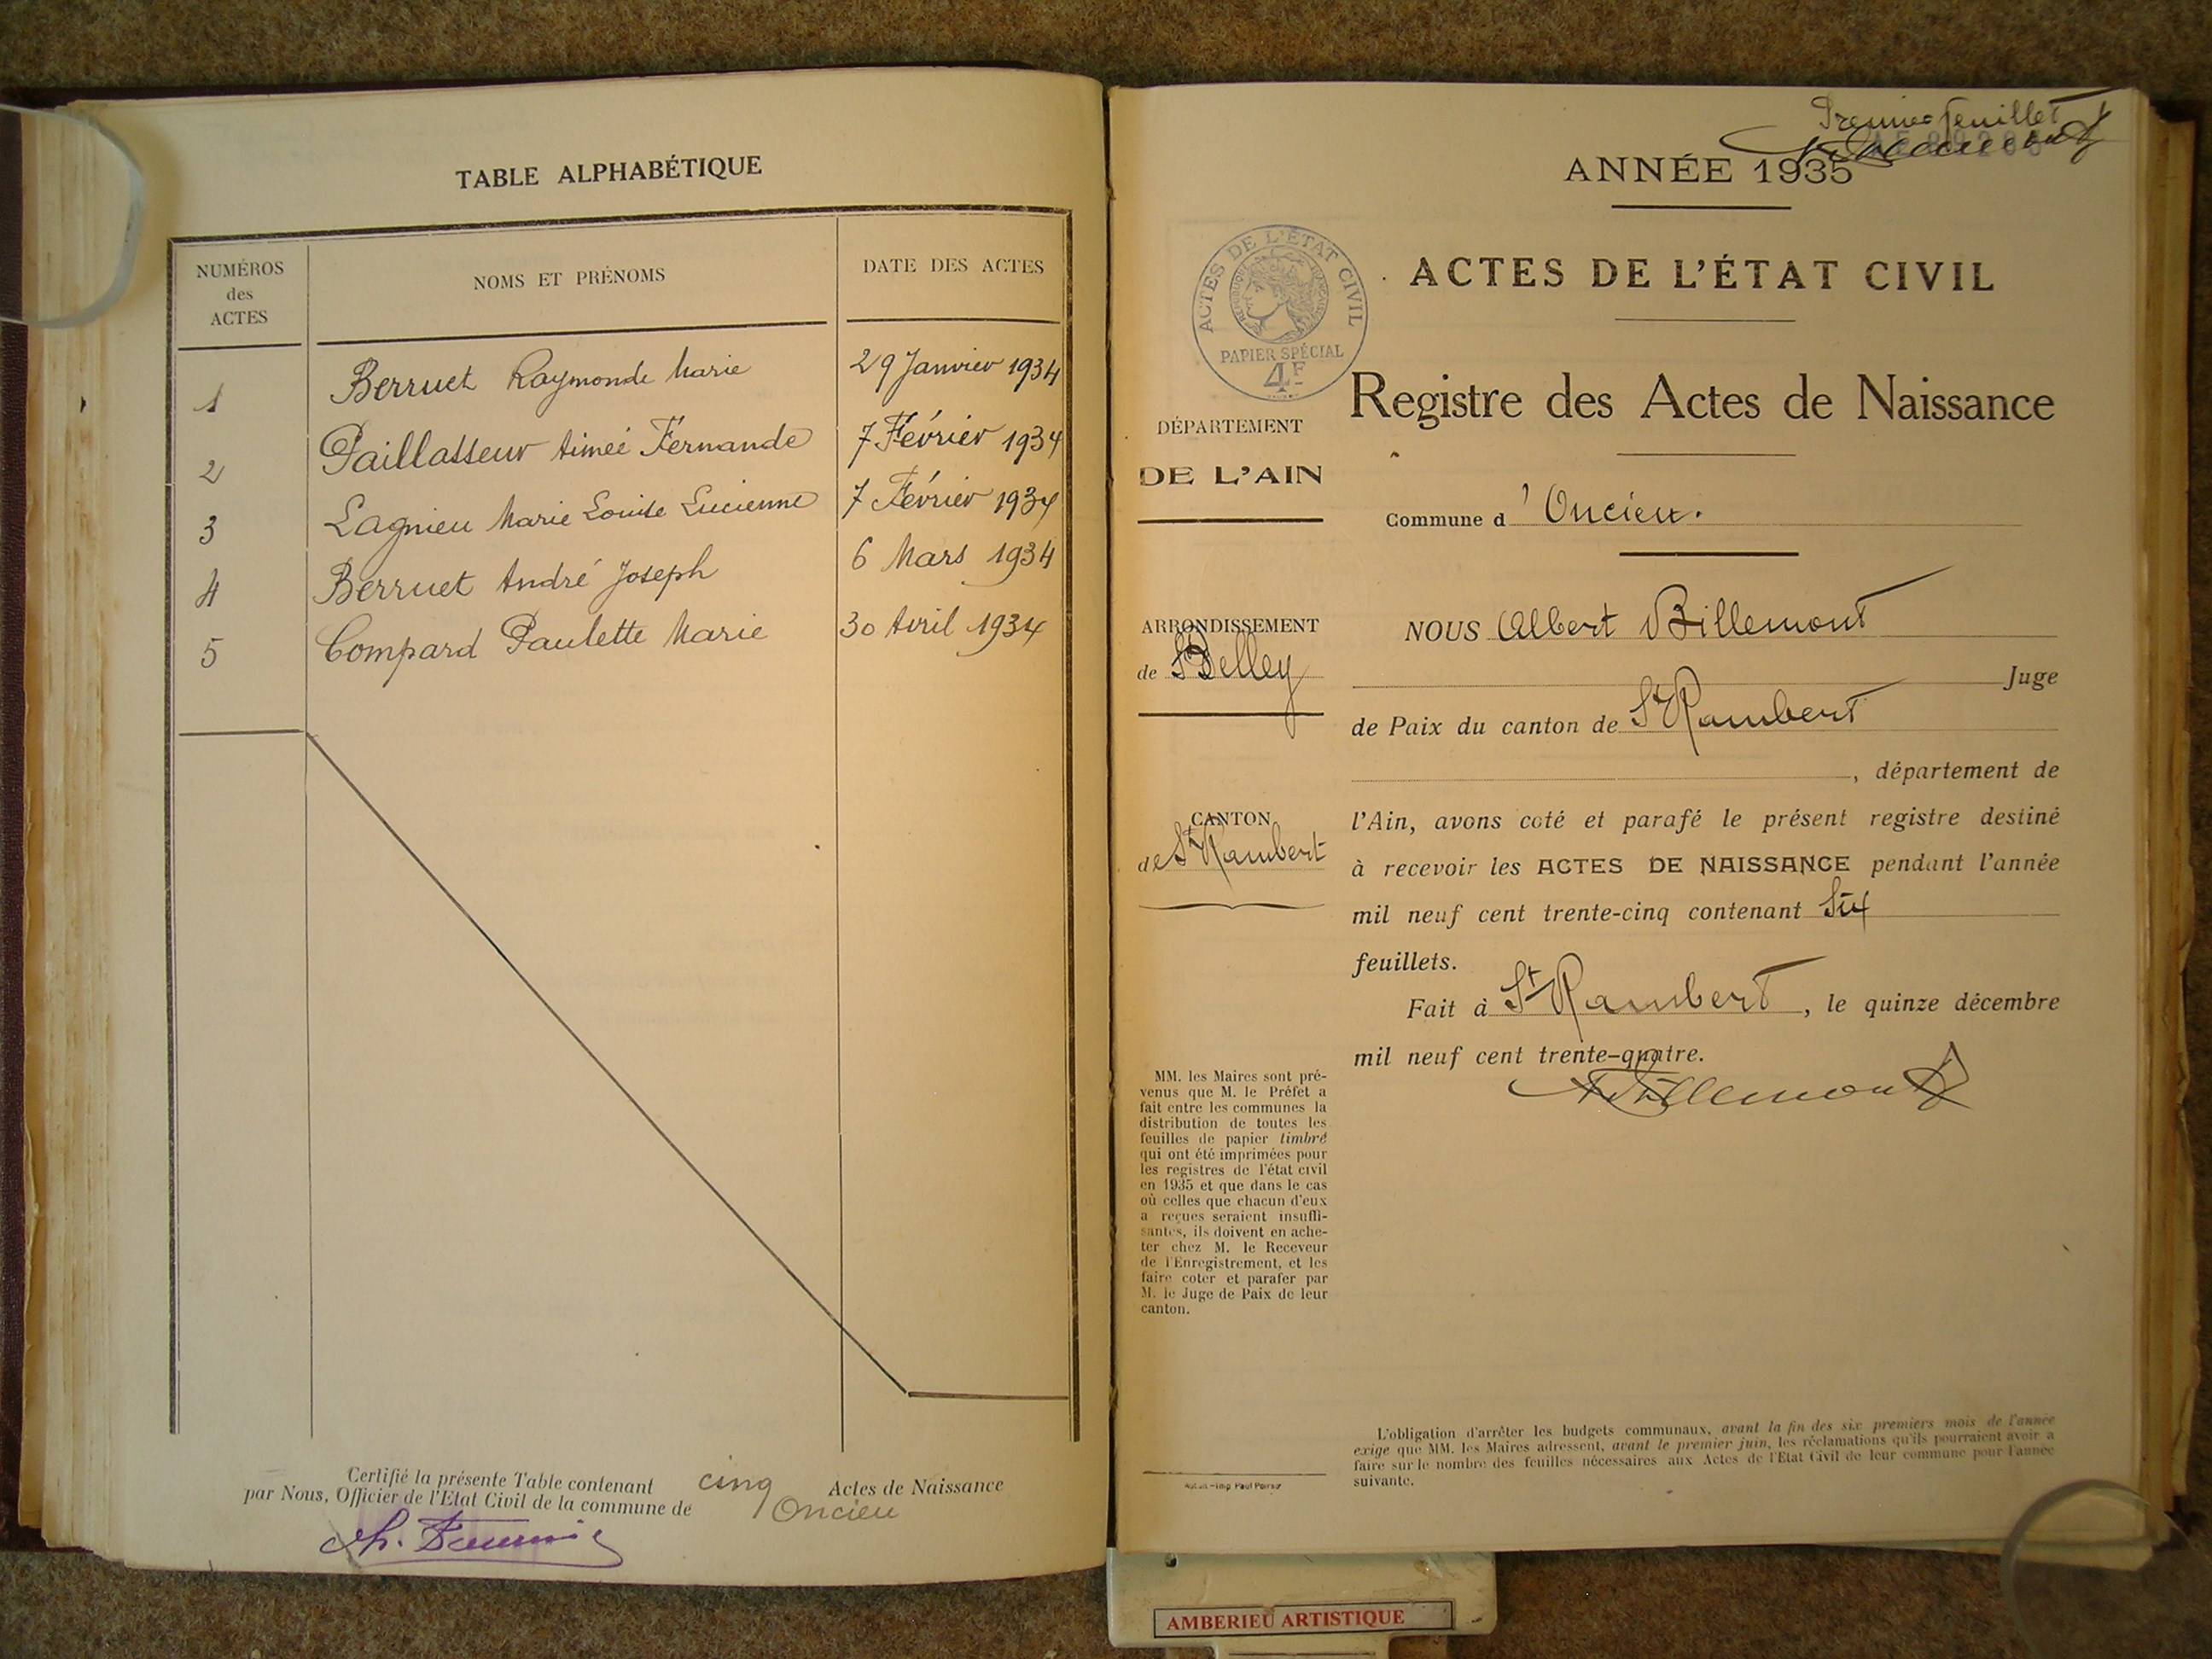 TABLE ALPHABÉTIQUE
NUMÉROS des ACTES
NOMS ET PRÉNOMS
DATE DES ACTES
1 Berruet Raymonde Marie 29 Janvier 1934
2 Paillasseur Aimée Fernande 7 Février 1934
3 Lagnieu Marie Louise Lucienne 7 Février 1934
4 Berruet André Joseph 6 Mars 1934
5 Compard Paulette Marie 30 Avril 1934
Certifié la présente Table contenant cinq Actes de Naissance
par Nous, Officier de l'Etat Civil de la commune de Oncieu
Premier feuillet
ANNÉE 1935
ACTES DE L'ÉTAT CIVIL
PAPIER SPÉCIAL
4F
ACTES DE L'ÉTAT CIVIL
Registre des Actes de Naissance
DÉPARTEMENT
DE L'AIN
Commune d'Oncieu.
ARRONDISSEMENT
de Belley
CANTON
de St Rambert
NOUS Albert Billemont
Juge
de Paix du canton de St Rambert
, département de
l'Ain, avons coté et parafé le présent registre destiné
à recevoir les ACTES DE NAISSANCE pendant l'année
mil neuf cent trente-cinq contenant Six
feuillets.
Fait à St Rambert, le quinze décembre
mil neuf cent trente-quatre.
ABillemont
MM. les Maires sont pré-
venus que M. le Préfet a
fait entre les communes la
distribution de toutes les
feuilles de papier timbré
qui ont été imprimées pour
les registres de l'état civil
en 1935 et que dans le cas
où celles que chacun d'eux
a reçues seraient insuffi-
santes, ils doivent en ache-
ter chez M. le Receveur
de l'Enregistrement, et les
faire coter et parafer par
M. le Juge de Paix de leur
canton.
L'obligation d'arrêter les budgets communaux, avant la fin des six premiers mois de l'année
exige que MM. les Maires adressent, avant le premier juin, les réclamations qu'ils pourraient avoir a
faire sur le nombre des feuilles nécessaires aux Actes de l'Etat Civil de leur commune pour l'année
suivante.
AMBERIEU ARTISTIQUE